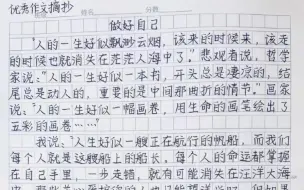 优秀作文摘抄
做好自己
"人的一生好似飘渺云烟，该来的时候来，该走
的时候也就消失在茫茫人海中了。"悲观者说。哲学
家说："人的一生好似一本书，开头总是凄凉的，结
尾总是动人的，重要的是中间那曲折的情节。"画家
说："人的一生好似一幅画卷，用生命的画笔绘出了
五彩的画卷……"
我说："人生好似一艘正在航行的帆船，而我们
每个人就是这艘船上的船长，每个人的命运都掌握
在自己手里，一步走错，就有可能消失在汪洋大海